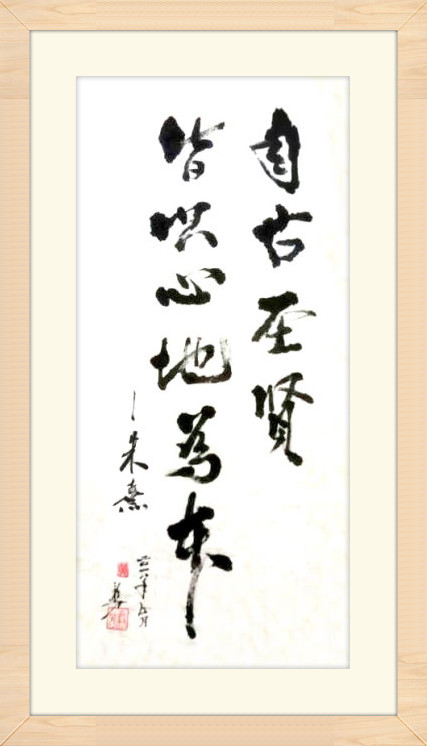 自古圣贤
皆以心地為本
—朱熹